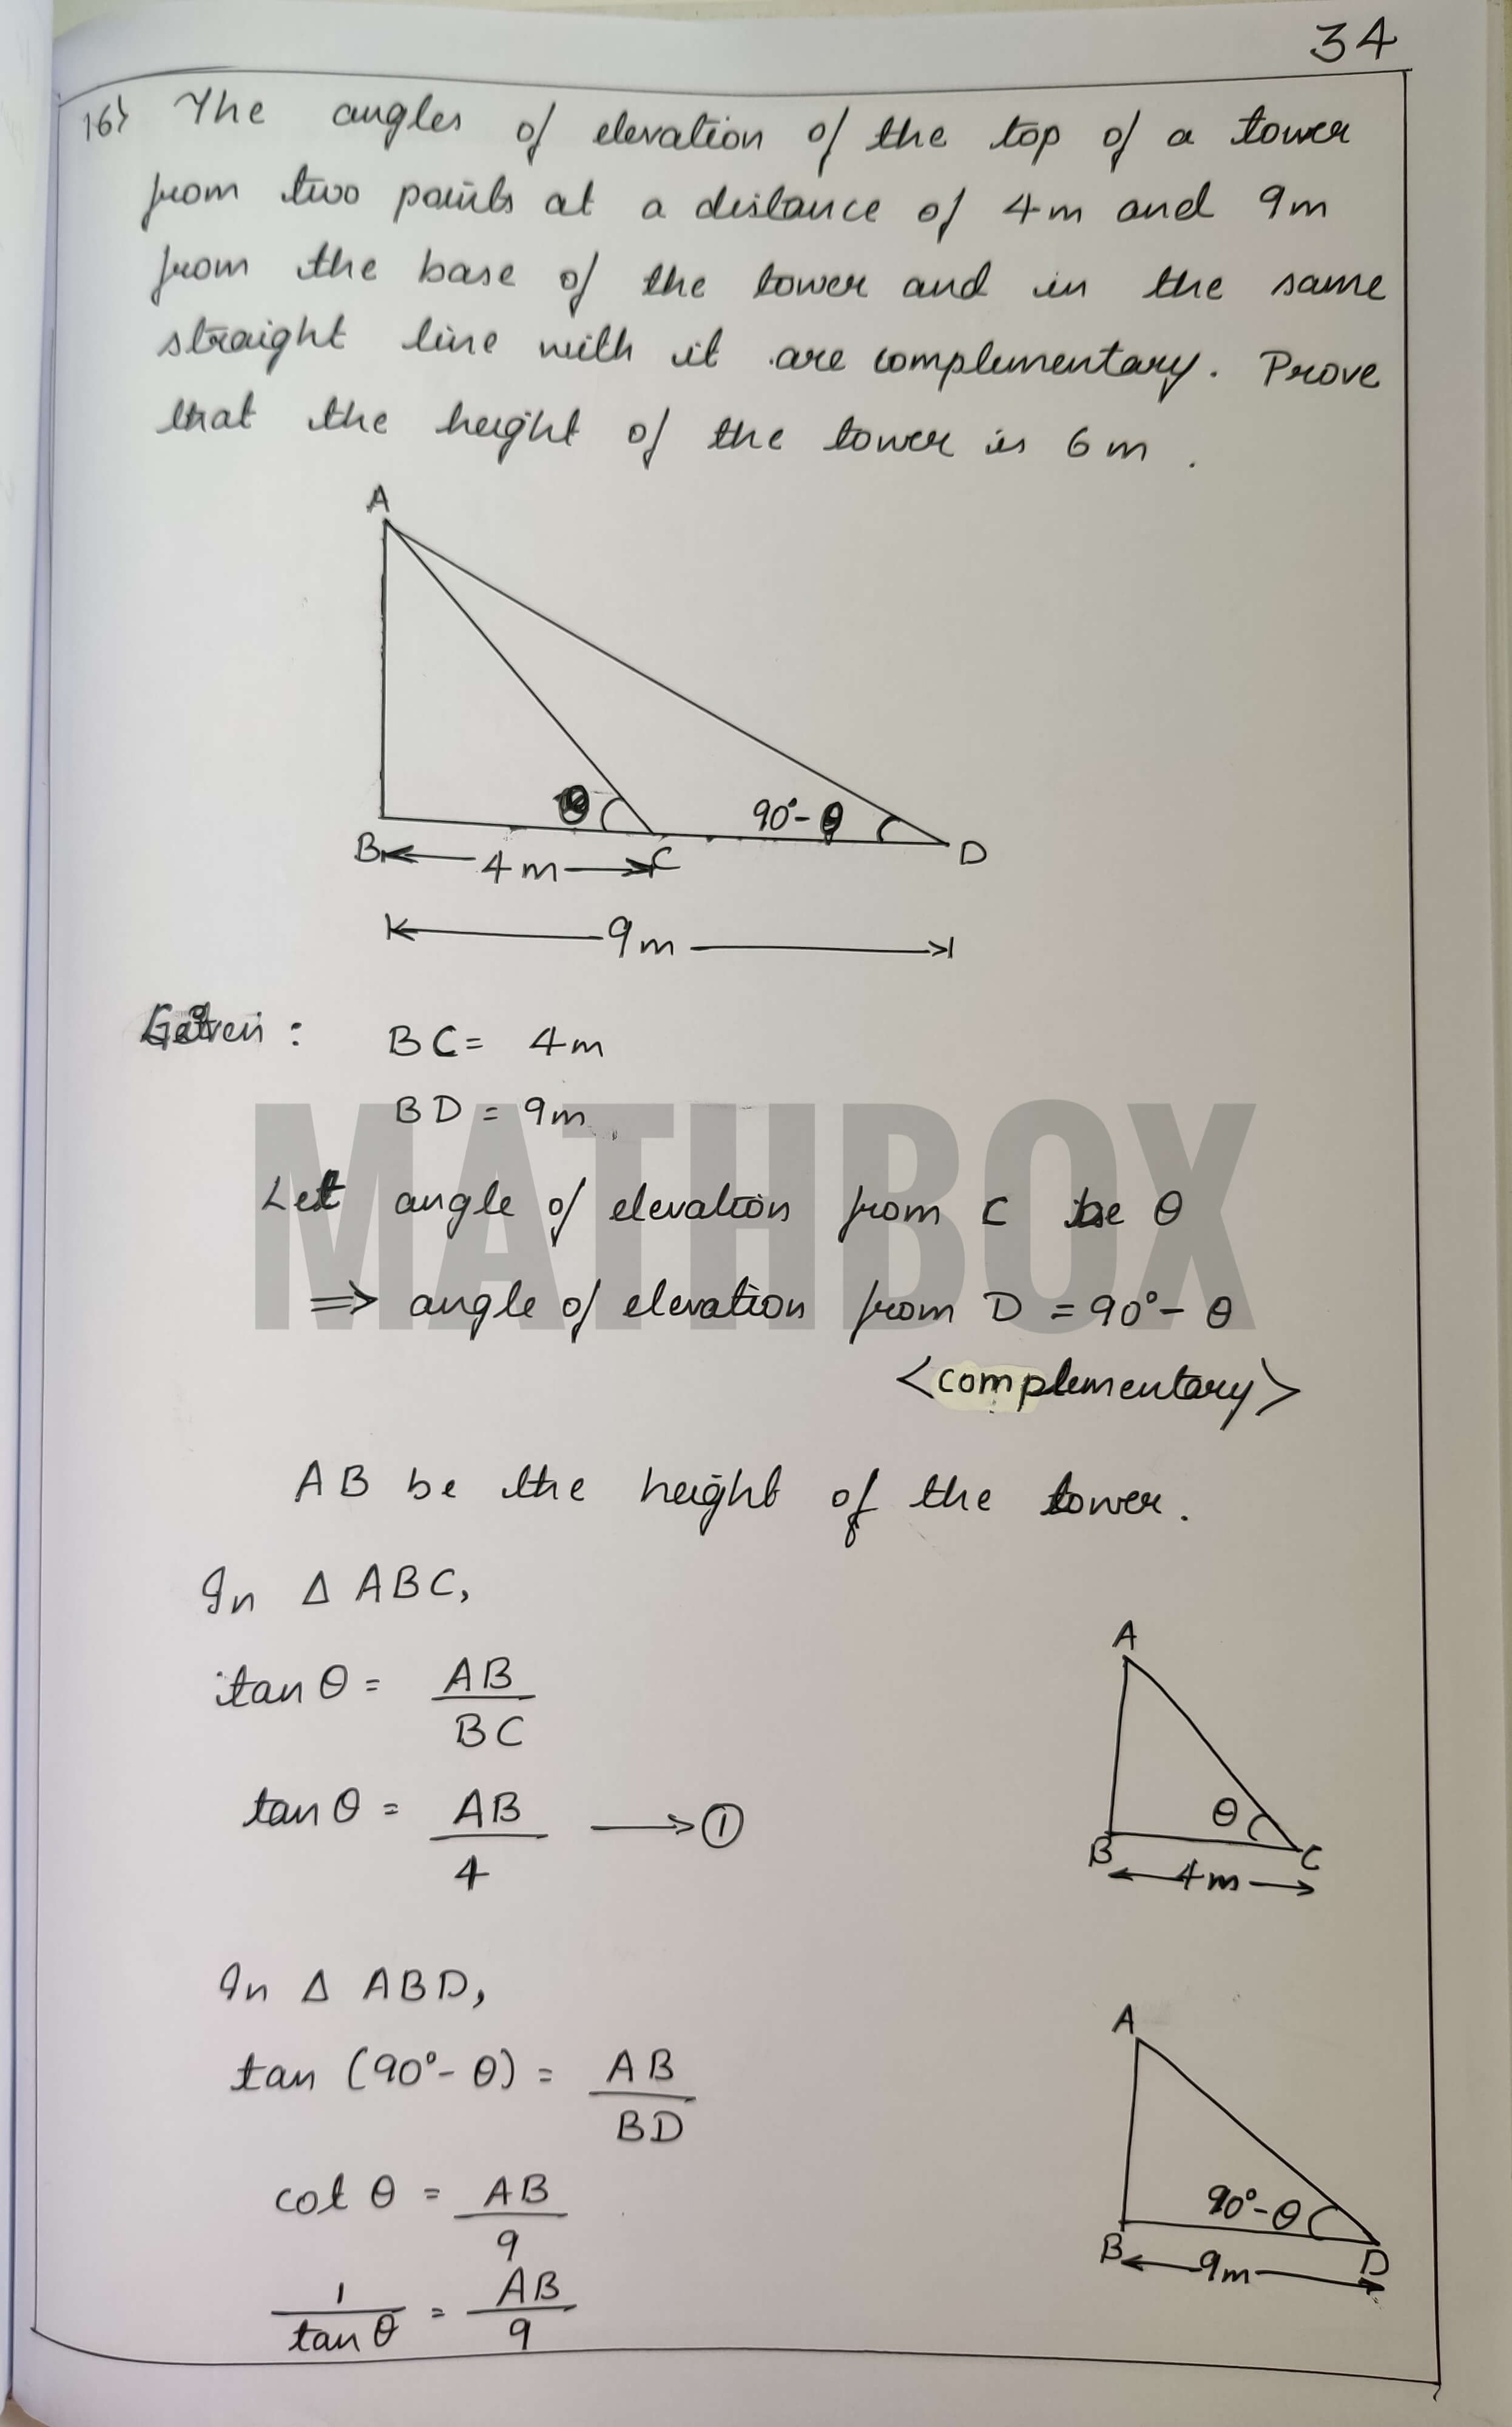 34
16) The angles of elevation of the top of a tower
from two points at a distance of 4m and 9m
from the base of the tower and in the same
straight line with it are complementary. Prove
that the height of the tower is 6m.
A
θ 90°- θ
B 4m C D
9m
Given: BC= 4m
BD = 9m
MATHBOX
Let angle of elevation from C be θ
⇒ angle of elevation from D = 90°- θ
<complementary>
AB be the height of the tower.
In Δ ABC,
tan θ = AB/BC
tan θ = AB/4 → ①
A
θ
B C
4m
In Δ ABD,
tan (90°- θ) = AB/BD
cot θ = AB/9
1/tan θ = AB/9
A
90°-θ
B D
9m